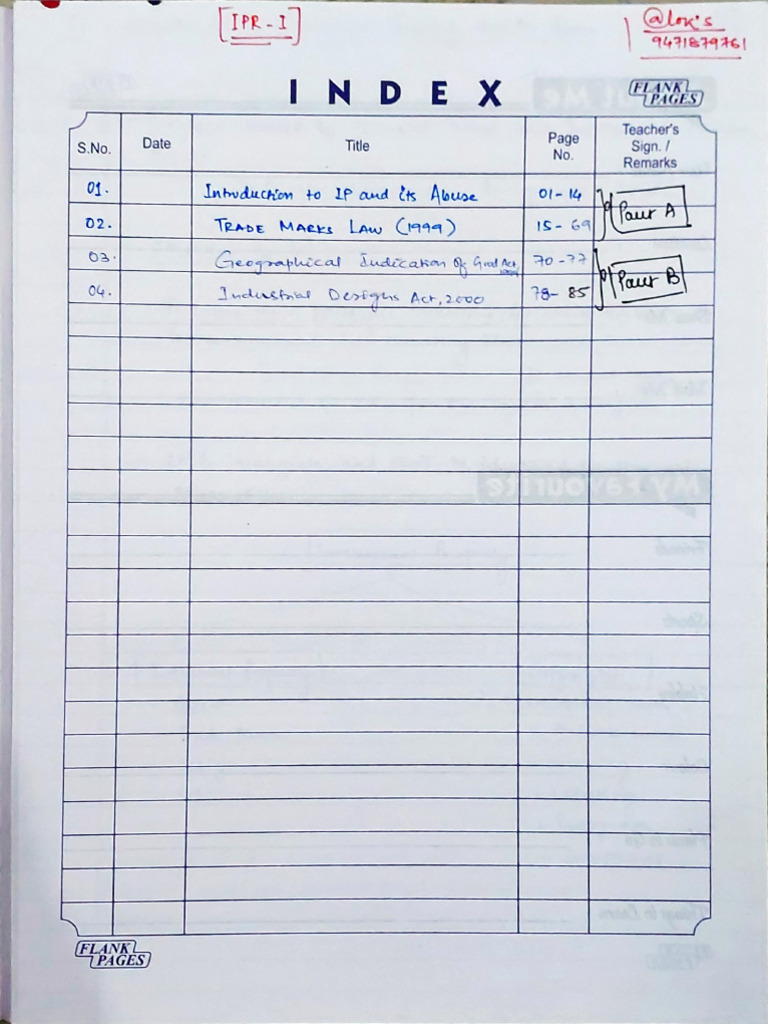 [IPR-I]
@lok's
9471879761
INDEX
FLANK PAGES
S.No. Date Title Page No. Teacher's Sign. / Remarks
01. Introduction to IP and its Abuse 01-14
Part A
02. TRADE MARKS LAW (1999) 15-69
03. Geographical Indication Of Good Act, 70-77
Part B
04. Industrial Designs Act, 2000 78-85
FLANK PAGES